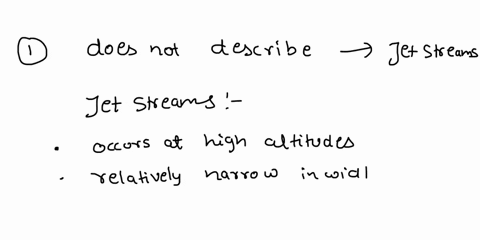 ① does not describe → Jet Streams
Jet Streams :-
• occurs at high altitudes
• relatively narrow in widl